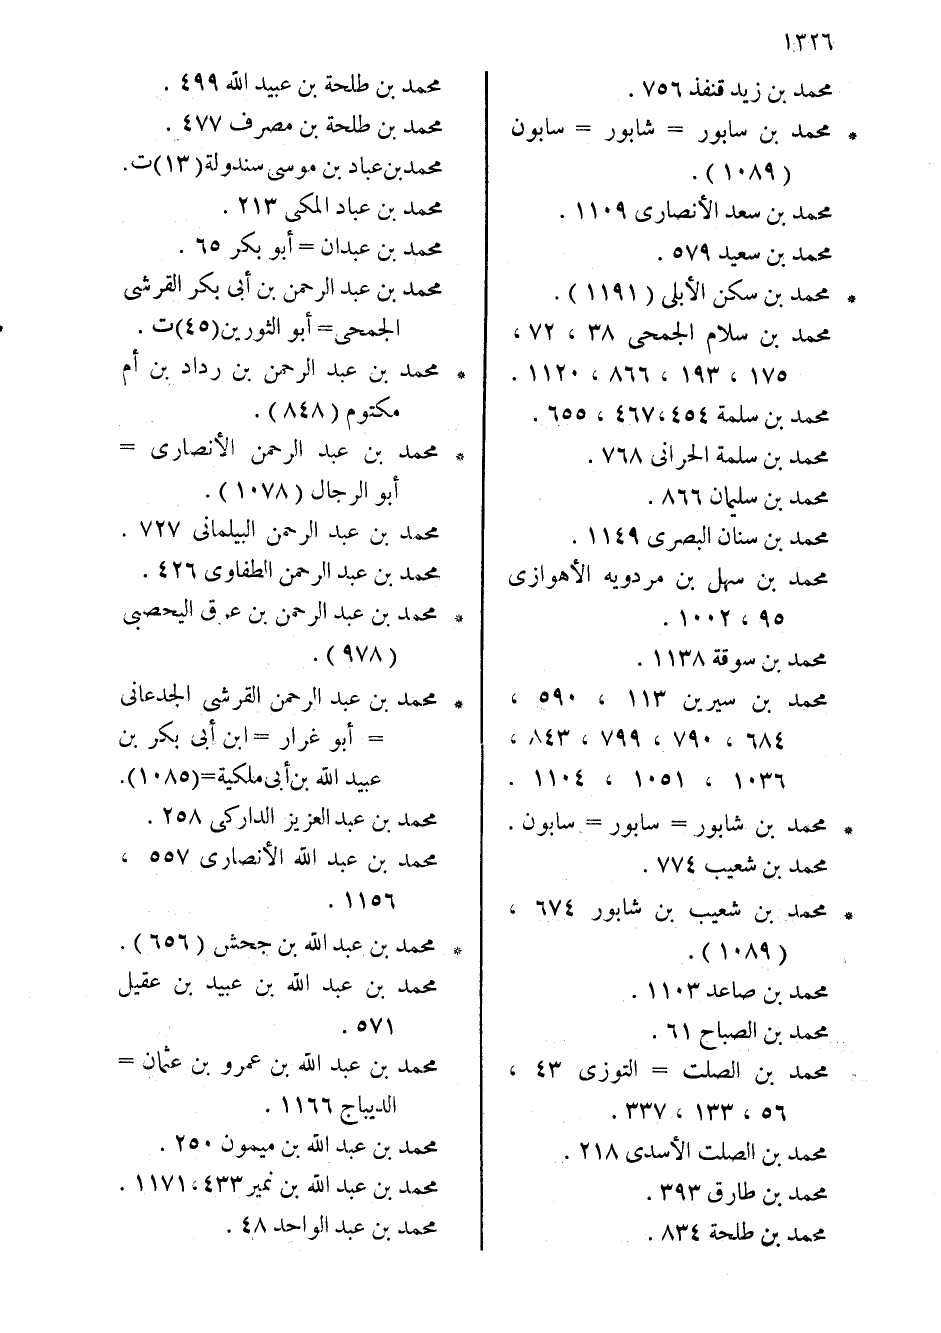 ١٣٢٦
محمد بن زيد قنفذ ٧٥٦ .
* محمد بن سابور = شابور = سابون
(١٠٨٩) .
محمد بن سعد الأنصارى ١١٠٩ .
محمد بن سعيد ٥٧٩ .
* محمد بن سكن الأبلى (١١٩١) .
محمد بن سلام الجمحى ٣٨ ، ٧٢ ،
١٧٥ ، ١٩٣ ، ٨٦٦ ، ١١٢٠ .
محمد بن سلمة ٤٥٤،٤٦٧ ، ٦٥٥ .
محمد بن سلمة الحرانى ٧٦٨ .
محمد بن سليمان ٨٦٦ .
محمد بن سنان البصرى ١١٤٩ .
محمد بن سهل بن مردويه الأهوازى
٩٥ ، ١٠٠٢ .
محمد بن سوقة ١١٣٨ .
محمد بن سيرين ١١٣ ، ٥٩٠ ،
٦٨٤ ، ٧٩٠ ، ٧٩٩ ، ٨٤٣ ،
١٠٣٦ ، ١٠٥١ ، ١١٠٤ .
* محمد بن شابور = سابور = سابون .
محمد بن شعيب ٧٧٤ .
* محمد بن شعيب بن شابور ٦٧٤ ،
(١٠٨٩) .
محمد بن صاعد ١١٠٣ .
محمد بن الصباح ٦١ .
محمد بن الصلت = التوزى ٤٣ ،
٥٦ ، ١٣٣ ، ٣٣٧ .
محمد بن الصلت الأسدى ٢١٨ .
محمد بن طارق ٣٩٣ .
محمد بن طلحة ٨٣٤ .
محمد بن طلحة بن عبيد الله ٤٩٩ .
محمد بن طلحة بن مصرف ٤٧٧ .
محمد بن عباد بن موسى سندولة (١٣)ت .
محمد بن عباد المكى ٢١٣ .
محمد بن عبدان = أبو بكر ٦٥ .
محمد بن عبد الرحمن بن أبى بكر القرشى
الجمحى = أبو الثورين (٤٥)ت .
* محمد بن عبد الرحمن بن رداد بن أم
مكتوم (٨٤٨) .
* محمد بن عبد الرحمن الأنصارى =
أبو الرجال (١٠٧٨) .
محمد بن عبد الرحمن البيلمانى ٧٢٧ .
محمد بن عبد الرحمن الطفاوى ٤٢٦ .
* محمد بن عبد الرحمن بن عرق اليحصبى
(٩٧٨) .
* محمد بن عبد الرحمن القرشى الجدعانى
= أبو غرار = ابن أبى بكر بن
عبيد الله بن أبى ملكية = (١٠٨٥) .
محمد بن عبد العزيز الداركى ٢٥٨ .
محمد بن عبد الله الأنصارى ٥٥٧ ،
١١٥٦ .
* محمد بن عبد الله بن جحش (٦٥٦) .
محمد بن عبد الله بن عبيد بن عقيل
٥٧١ .
محمد بن عبد الله بن عمرو بن عثمان =
الديباج ١١٦٦ .
محمد بن عبد الله بن ميمون ٢٥٠ .
محمد بن عبد الله بن نمير ٤٣٣ ، ١١٧١ .
محمد بن عبد الواحد ٤٨ .